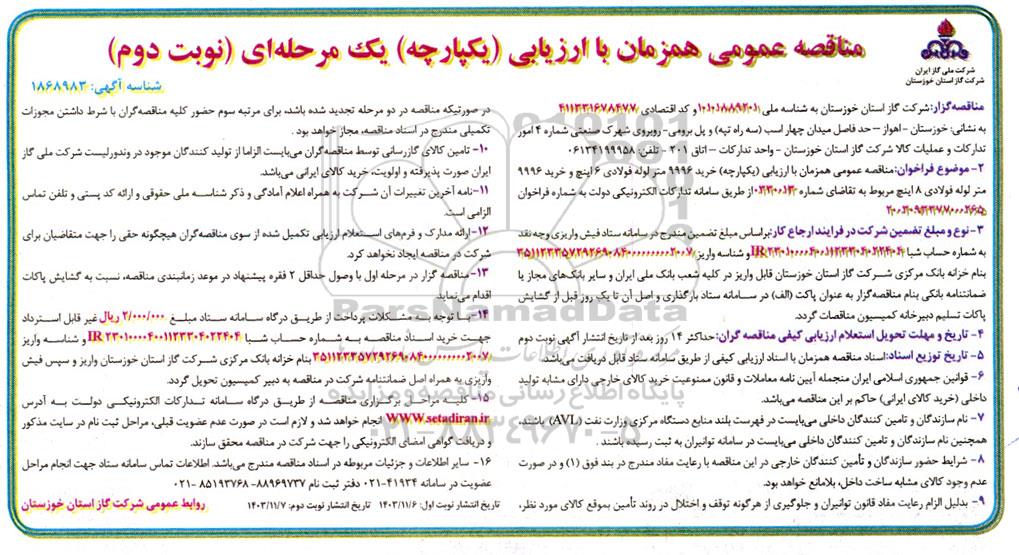 مناقصه عمومی همزمان با ارزیابی (یکپارچه) یک مرحله‌ای (نوبت دوم)
شرکت ملی گاز ایران
شرکت گاز استان خوزستان
شناسه آگهی: ۱۸۶۸۹۸۳
مناقصه‌گزار: شرکت گاز استان خوزستان به شناسه ملی ۱۰۱۰۱۸۸۹۲۰۱ و کد اقتصادی ۴۱۱۳۳۱۶۷۸۴۷۷
به نشانی: خوزستان - اهواز – حد فاصل میدان چهار اسب (سه راه تپه) و پل برومی- روبروی شهرک صنعتی شماره ۴ امور
تدارکات و عملیات کالا شرکت گاز استان خوزستان - واحد تدارکات – اتاق ۲۰۱ - تلفن: ۰۶۱۳۴۱۹۹۹۵۸
۲- موضوع فراخوان: مناقصه عمومی همزمان با ارزیابی (یکپارچه) خرید ۹۹۹۶ متر لوله فولادی ۶ اینچ و خرید ۹۹۹۶
متر لوله فولادی ۸ اینچ مربوط به تقاضای شماره از طریق سامانه تدارکات الکترونیکی دولت به شماره فراخوان
۳- نوع و مبلغ تضمین شرکت در فرایند ارجاع کار: براساس مبلغ تضمین مندرج در سامانه ستاد فیش واریزی وجه نقد
به شماره حساب شبا و شناسه واریز
بنام خزانه بانک مرکزی شرکت گاز استان خوزستان قابل واریز در کلیه شعب بانک ملی ایران و سایر بانک‌های مجاز یا
ضمانتنامه بانکی بنام مناقصه‌گزار به عنوان پاکت (الف) در سامانه ستاد بارگذاری و اصل آن تا یک روز قبل از گشایش
پاکات تسلیم دبیرخانه کمیسیون مناقصات گردد.
۴- تاریخ و مهلت تحویل استعلام ارزیابی کیفی مناقصه گران: حداکثر ۱۴ روز بعد از تاریخ انتشار آگهی نوبت دوم
۵- تاریخ توزیع اسناد: اسناد مناقصه همزمان با اسناد ارزیابی کیفی از طریق سامانه ستاد قابل دریافت می‌باشد.
۶- قوانین جمهوری اسلامی ایران منجمله آیین نامه معاملات و قانون ممنوعیت خرید کالای خارجی دارای مشابه تولید
داخلی (خرید کالای ایرانی) حاکم بر این مناقصه می‌باشد.
۷- نام سازندگان و تامین کنندگان داخلی می‌بایست در فهرست بلند منابع دستگاه مرکزی وزارت نفت (AVL) باشند،
همچنین نام سازندگان و تامین کنندگان داخلی می‌بایست در سامانه توانیران به ثبت رسیده باشند.
۸- شرایط حضور سازندگان و تأمین کنندگان خارجی در این مناقصه با رعایت مفاد مندرج در بند فوق (۱) و در صورت
عدم وجود کالای مشابه ساخت داخل، بلامانع خواهد بود.
۹- بدلیل الزام رعایت مفاد قانون توانیران و جلوگیری از هرگونه توقف و اختلال در روند تأمین بموقع کالای مورد نظر،
در صورتیکه مناقصه در دو مرحله تجدید شده باشد، برای مرتبه سوم حضور کلیه مناقصه‌گران با شرط داشتن مجوزات
تکمیلی مندرج در اسناد مناقصه، مجاز خواهد بود.
۱۰- تامین کالای گازرسانی توسط مناقصه‌گران می‌بایست الزاما از تولید کنندگان موجود در وندورلیست شرکت ملی گاز
ایران صورت پذیرفته و اولویت، خرید کالای ایرانی می‌باشد.
۱۱- نامه آخرین تغییرات آن شرکت به همراه اعلام آمادگی و ذکر شناسه ملی حقوقی و ارائه کد پستی و تلفن تماس
الزامی است.
۱۲- ارائه مدارک و فرم‌های استعلام ارزیابی تکمیل شده از سوی مناقصه‌گران هیچگونه حقی را جهت متقاضیان برای
شرکت در مناقصه ایجاد نخواهد کرد.
۱۳- مناقصه گزار در مرحله اول با وصول حداقل ۲ فقره پیشنهاد در موعد زمانبندی مناقصه، نسبت به گشایش پاکات
اقدام می‌نماید.
۱۴- با توجه به مشکلات پرداخت از طریق درگاه سامانه ستاد مبلغ ۲/۰۰۰/۰۰۰ ریال غیر قابل استرداد
جهت خرید اسناد مناقصه به شماره حساب شبا و شناسه واریز
بنام خزانه بانک مرکزی شرکت گاز استان خوزستان واریز و سپس فیش
واریزی به همراه اصل ضمانتنامه شرکت در مناقصه به دبیر کمیسیون تحویل گردد.
۱۵- کلیه مراحل برگزاری مناقصه از طریق درگاه سامانه تدارکات الکترونیکی دولت به آدرس
WWW.setadiran.ir انجام خواهد شد و لازم است در صورت عدم عضویت قبلی، مراحل ثبت نام در سایت مذکور
و دریافت گواهی امضای الکترونیکی را جهت شرکت در مناقصه محقق سازند.
۱۶- سایر اطلاعات و جزئیات مربوطه در اسناد مناقصه مندرج می‌باشد. اطلاعات تماس سامانه ستاد جهت انجام مراحل
عضویت در سامانه ۴۱۹۳۴-۰۲۱ دفتر ثبت نام ۸۸۹۶۹۷۳۷- ۸۵۱۹۳۷۶۸-۰۲۱
تاریخ انتشار نوبت اول: ۱۴۰۳/۱۱/۶ تاریخ انتشار نوبت دوم: ۱۴۰۳/۱۱/۷
روابط عمومی شرکت گاز استان خوزستان
ParsNamadData
پایگاه اطلاع رسانی مناقصه و مزایده
۰۲۱-۸۸۳۴۹۶۷۰-۵